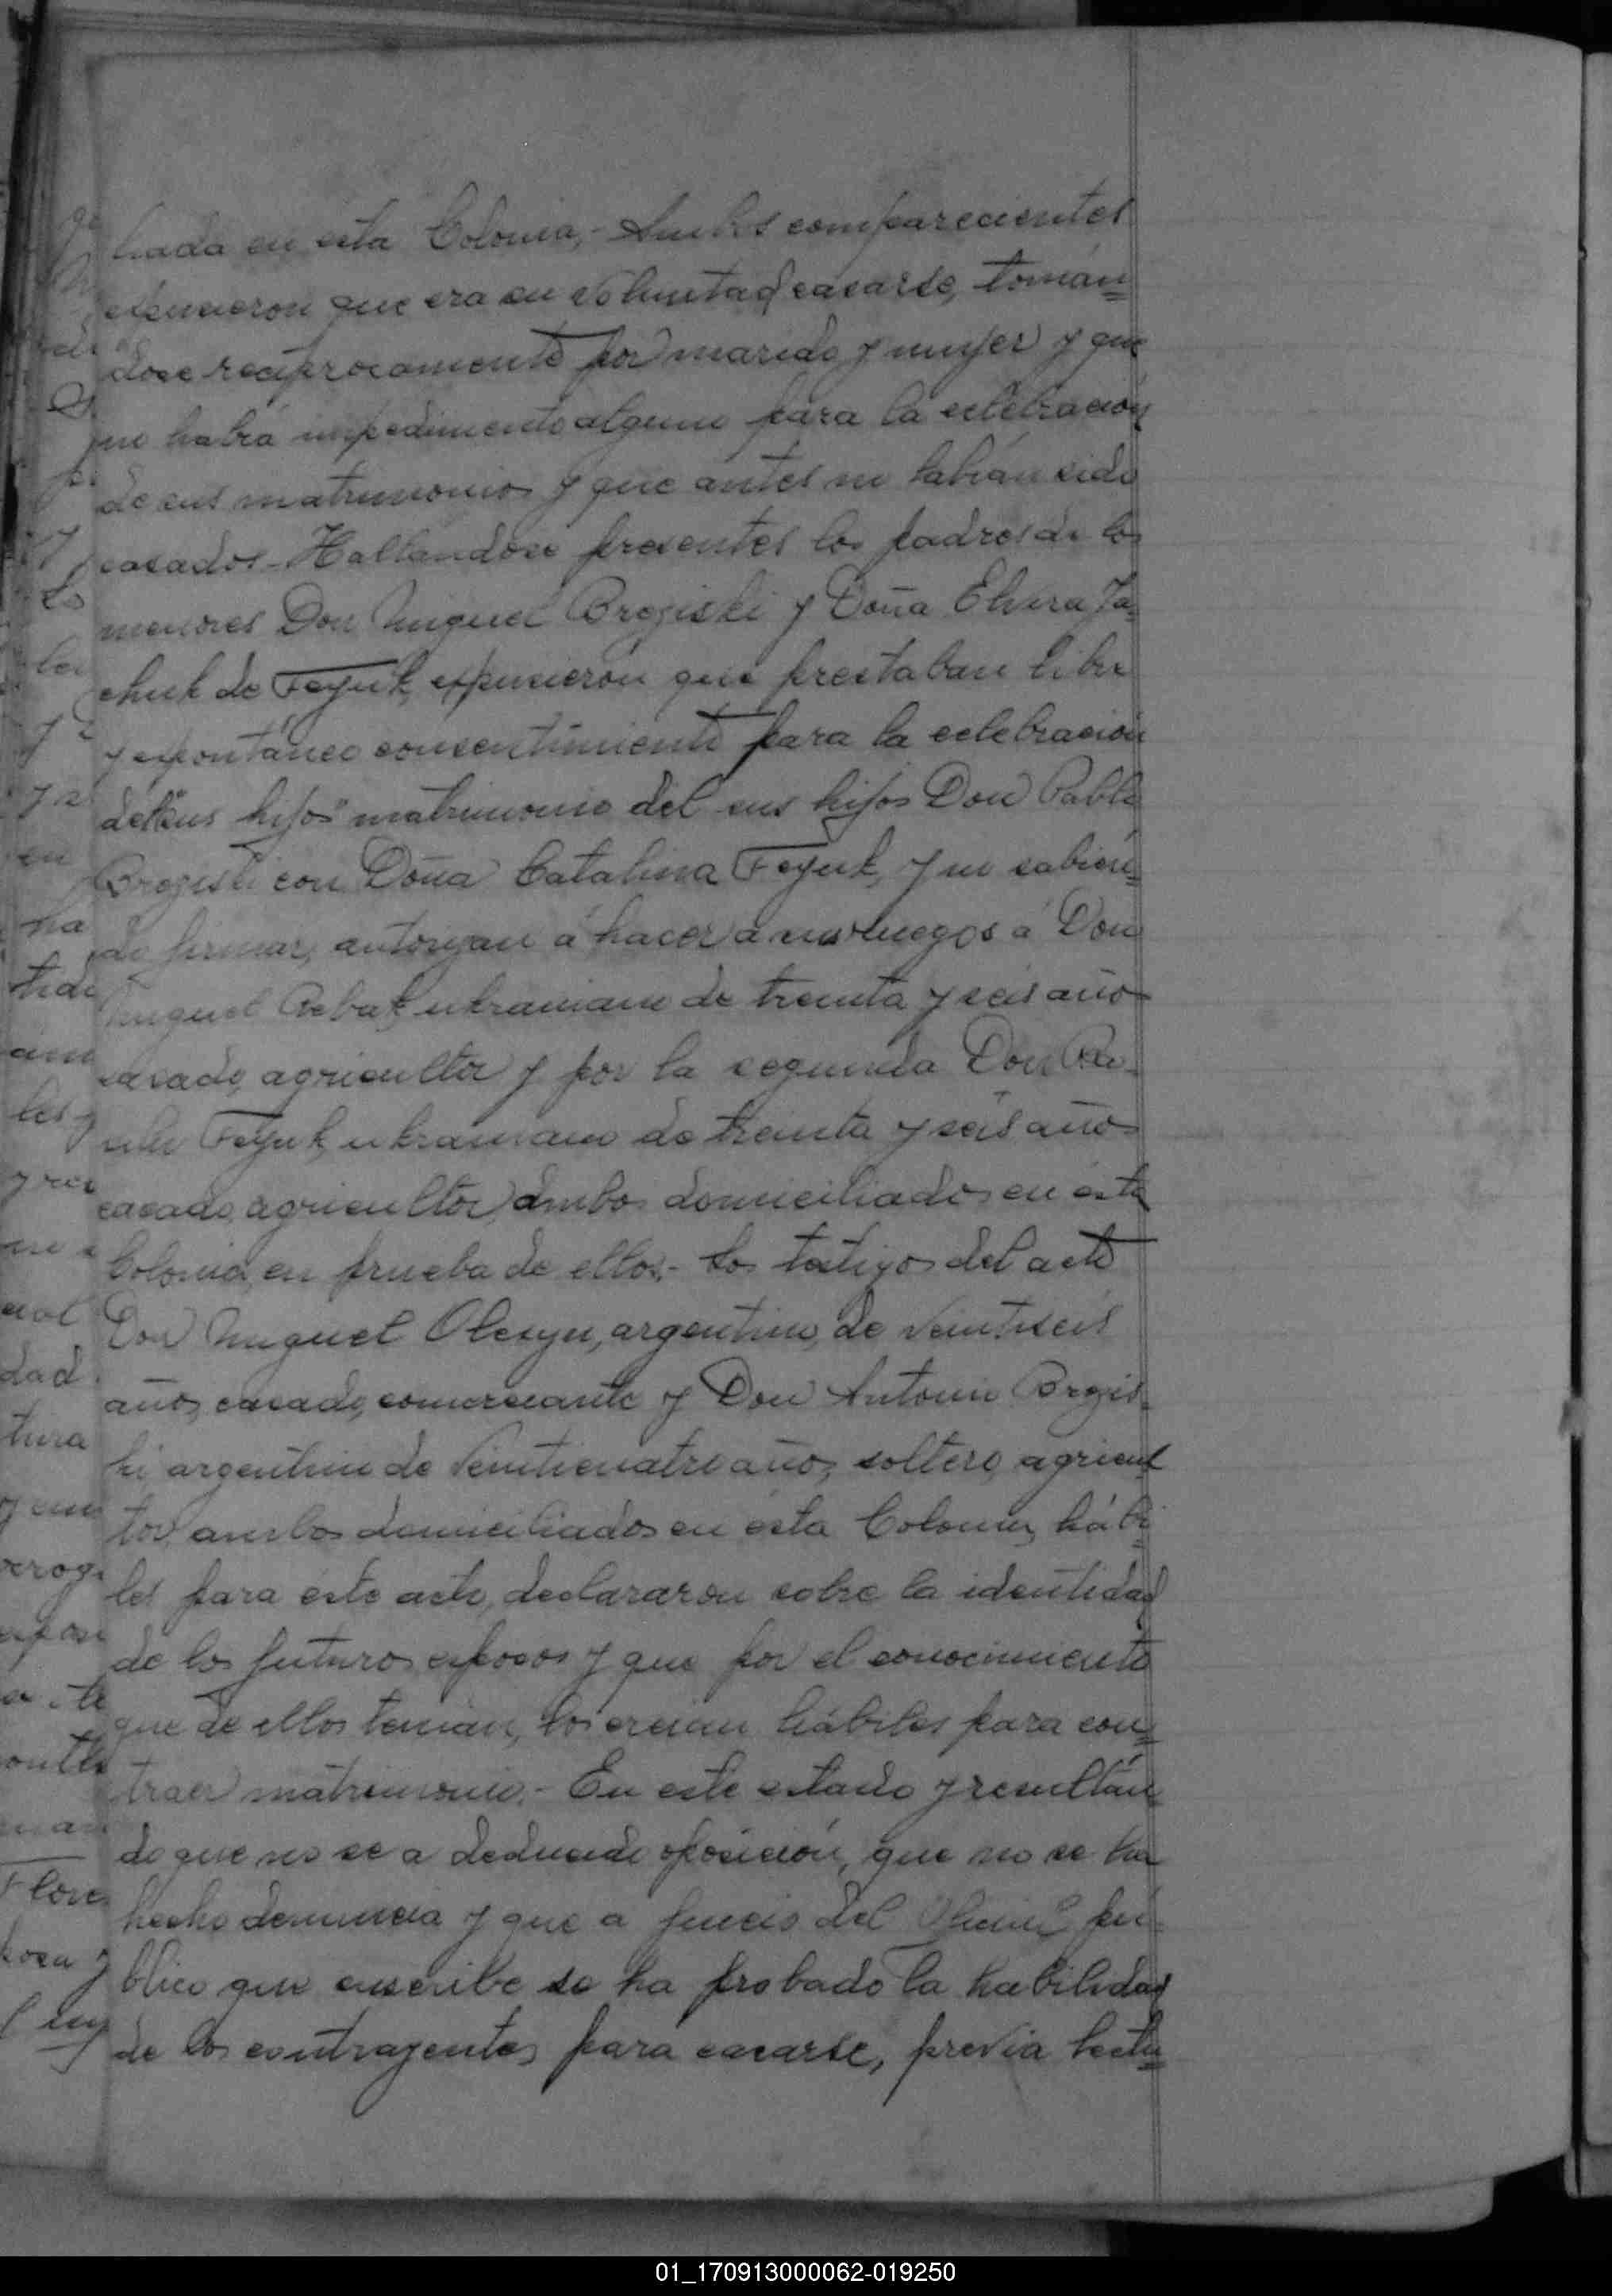 liada en esta Colonia,- Ambos comparecientes
expusieron que era su voluntad casarse, tomán=
dose recíprocamente por marido y mujer y que
no había impedimento alguno para la celebración
de sus matrimonios y que antes no habían sido
casados.- Hallandose presentes los padres de los
menores Don Miguel Brogiski y Doña Elvira Ja=
chuk de Feyuk, expusieron que prestaban libre
y espontáneo consentimiento para la celebración
del "sus hijos" matrimonio del sus hijos Don Pablo
Brogiski con Doña Catalina Feyuk, y no sabien=
do firmar, autorizan á hacer a sus ruegos á Don
Miguel Rebak, ukraniano de treinta y seis años
casado, agricultor y por la segunda Don
Feyuk, ukraniano de treinta y seis años
casado, agricultor, ambos domiciliados en esta
Colonia, en prueba de ellos.- Los testigos del acto
Don Miguel Olesyn, argentino, de veintiseis
años, casado, comerciante y Don Antonio Brogis=
ki argentino de veinticuatro años, soltero, agricul
tor, ambos domiciliados en esta Colonia, hábi=
les para este acto, declararon sobre la identidad
de los futuros esposos y que por el conocimiento
que de ellos tenían, los creian hábiles para con=
traer matrimonio.- En este estado y resultán=
do que no se a deducido oposición, que no se ha
hecho denuncia y que a juicio del Oficial pú=
blico que suscribe se ha probado la habilidad
de los contrayentes para casarse, previa lectu=
01_170913000062-019250